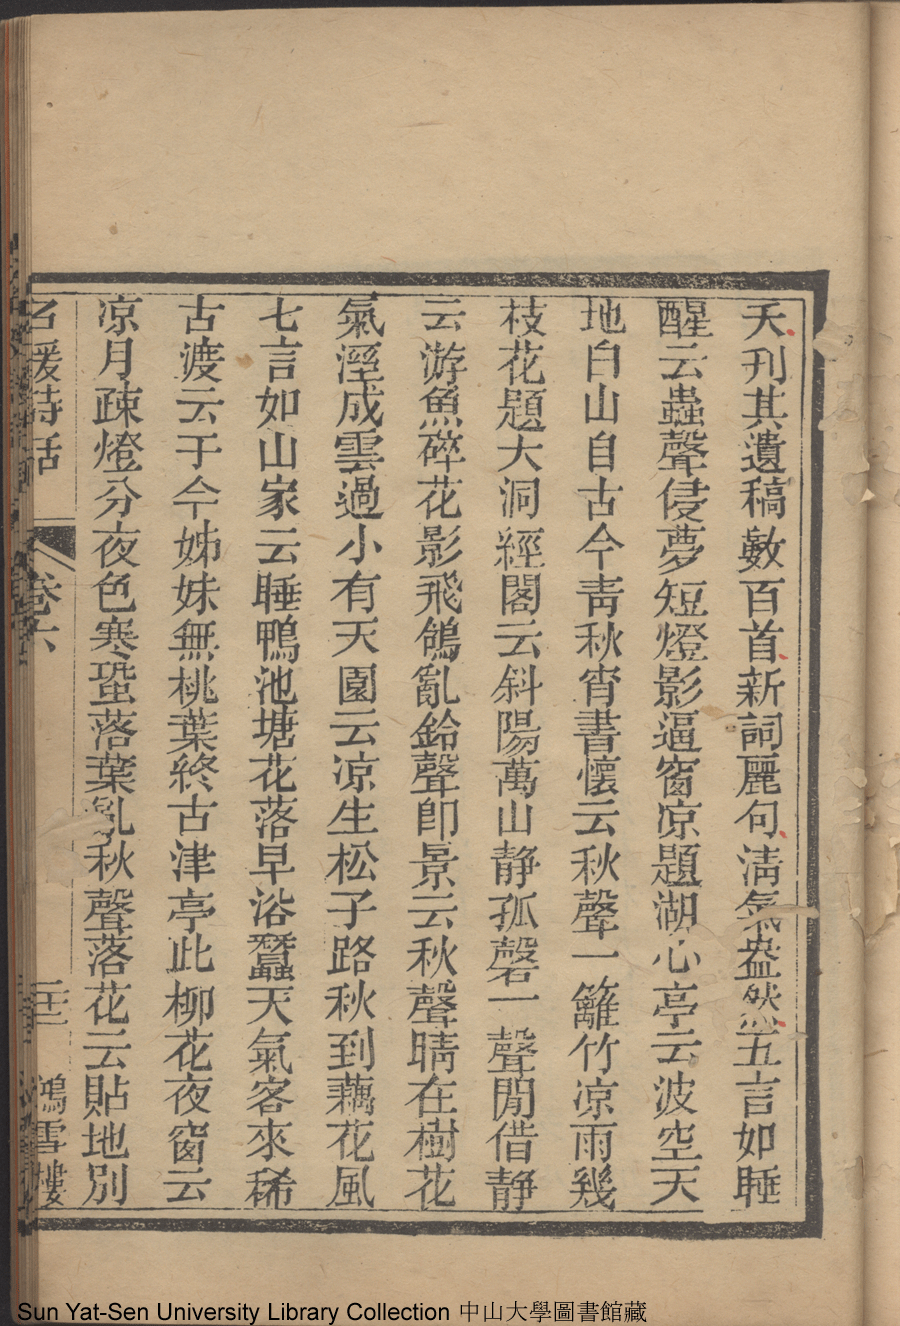 天刋其遺稿數百首新詞麗句淸氣盎然五言如睡
醒云蟲聲侵夢短燈影逼窗凉題湖心亭云波空天
地白山自古今靑秋宵書懷云秋聲一籬竹凉雨幾
枝花題大洞經閣云斜陽萬山靜孤磬一聲閒借靜
云游魚碎花影飛鴿亂鈴聲卽景云秋聲晴在樹花
氣溼成雲過小有天園云凉生松子路秋到藕花風
七言如山家云睡鴨池塘花落早浴蠶天氣客來稀
古渡云于今姊妹無桃葉終古津亭此柳花夜窗云
凉月疎燈分夜色寒蛩落葉亂秋聲落花云貼地別
名媛詩話 卷六 二十二 鴻雪樓
Sun Yat-Sen University Library Collection 中山大學圖書館藏